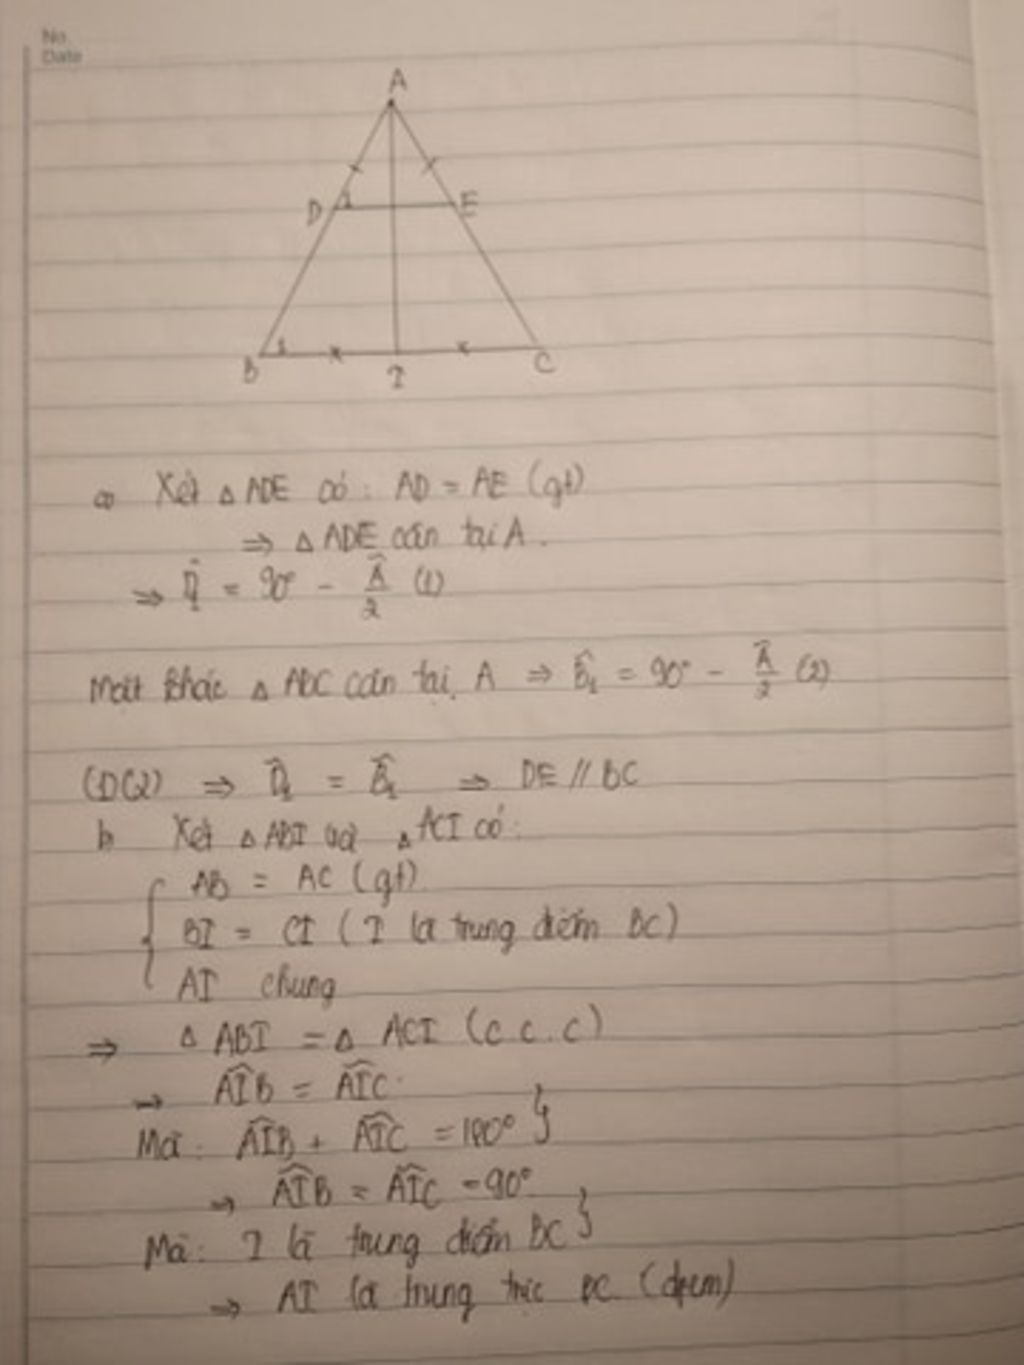 No.
Date
A
D 1 E
B 1 I C
a) Xét △ ADE có : AD = AE (gt)
⇒ △ ADE cân tại A .
⇒ D̂₁ = 90° - Â/2 (1)
Mặt khác △ ABC cân tại A ⇒ B̂₁ = 90° - Â/2 (2)
(1)(2) ⇒ D̂₁ = B̂₁ ⇒ DE // BC
b Xét △ ABI và △ ACI có :
AB = AC (gt)
BI = CI ( I là trung điểm BC )
AI chung
⇒ △ ABI = △ ACI (c c . c)
→ AIB̂ = AIĈ
Mà : AIB̂ + AIĈ = 180° }
→ AIB̂ = AIĈ = 90°
Mà : I là trung điểm BC }
→ AI là trung trực BC (đpcm)